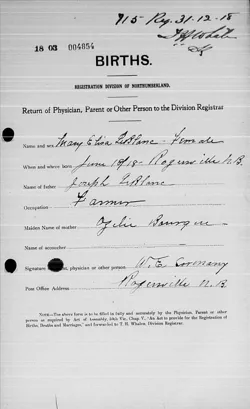 915 Reg. 31-12-18
18 03 004054
BIRTHS.
REGISTRATION DIVISION OF NORTHUMBERLAND.
Return of Physician, Parent or Other Person to the Division Registrar
Name and sex Mary Elisa LeBlanc - Female
When and where born June 18/18 - Rogersville N.B.
Name of father Joseph LeBlanc
Occupation Farmer
Maiden Name of mother Zelie Bourque
Name of accoucheur
Signature physician or other person W. E.
Post Office Address Rogersville N.B.
NOTE.—The above form is to be filled in fully and accurately by the Physician, Parent or other
person as required by Act of Assembly, Chap. 7, "An Act to provide for the Registration of
Births, Deaths and Marriages," and forwarded to T. H. Whalen, Division Registrar.